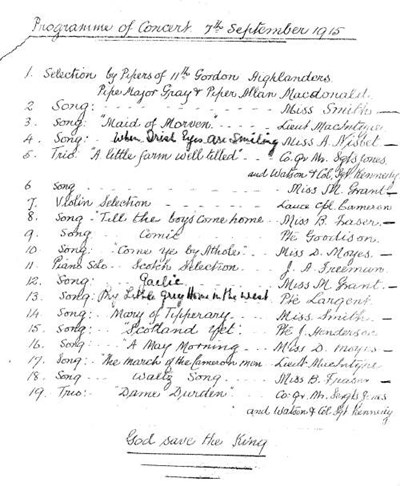 Programme of Concert 7th September 1915
1. Selection by Pipers of 11th Gordon Highlanders.
Pipe Major Gray & Piper Allan Macdonald.
2 Song: - - - - - - - Miss Smith -
3. Song: "Maid of Morven" - - - Lieut MacIntyre
4. Song: When Irish Eyes Are Smiling Miss A. Nisbet -
5. Trio "A little farm well tilled" - - Co. Qr. Mr. Sgts Jones
and Watson & Col. Sgt Kennerty
6 Song - - - - - - - Miss M. Grant -
7. Violin Selection Lance Cpl. Cameron
8. Song: "Till the boys Come home - - Miss B. Fraser. -
9. Song Comic Pte Goodison.
10. Song: "Come ye by Athole" - - Miss D. Moyes. -
11. Piano Solo - - Scotch Selection. J. A. Freeman
12. Song: - - Gaelic Miss M. Grant -
13. Song: My Little Grey Home in the west Pte Largent.
14. Song: - - Mary of Tipperary - - Miss Smith. -
15. Song: - - "Scotland Yet" - - Pte J. Henderson
16. Song: - - "A May Morning - - Miss D. Moyes -
17. Song: "The march of the Cameron men Lieut MacIntyre
18. Song - - Waltz Song - - Miss B. Fraser -
19. Trio: - "Dame Durden" - - Co. Qr. Mr. Sergts Jones
and Watson & Col. Sgt Kennerty
God save the King